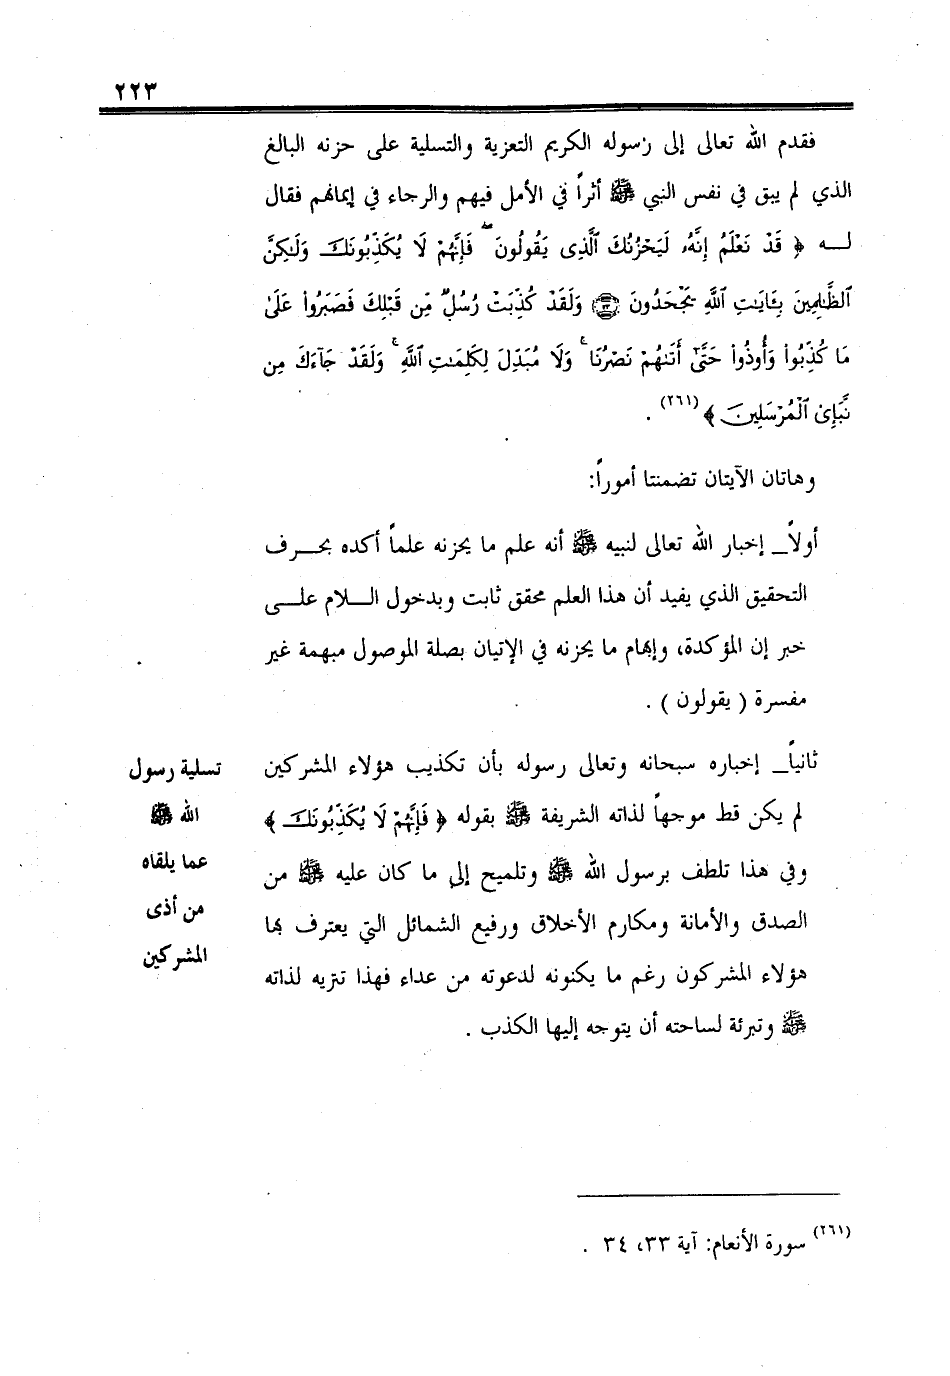 ٢٢٣
فقدم الله تعالى إلى رسوله الكريم التعزية والتسلية على حزنه البالغ
الذي لم يبق في نفس النبي ﷺ أثراً في الأمل فيهم والرجاء في إيمانهم فقال
لــه ﴿ قَدْ نَعْلَمُ إِنَّهُۥ لَيَحْزُنُكَ ٱلَّذِى يَقُولُونَ ۖ فَإِنَّهُمْ لَا يُكَذِّبُونَكَ وَلَـٰكِنَّ
ٱلظَّـٰلِمِينَ بِـَٔايَـٰتِ ٱللَّهِ يَجْحَدُونَ ﴿٣٣﴾ وَلَقَدْ كُذِّبَتْ رُسُلٌ مِّن قَبْلِكَ فَصَبَرُوا۟ عَلَىٰ
مَا كُذِّبُوا۟ وَأُوذُوا۟ حَتَّىٰٓ أَتَىٰهُمْ نَصْرُنَا ۚ وَلَا مُبَدِّلَ لِكَلِمَـٰتِ ٱللَّهِ ۚ وَلَقَدْ جَآءَكَ مِن
نَّبَإِى۟ ٱلْمُرْسَلِينَ ﴾(٢٦١) .
وهاتان الآيتان تضمنتا أموراً:
أولاً_ إخبار الله تعالى لنبيه ﷺ أنه علم ما يحزنه علماً أكده بحــرف
التحقيق الذي يفيد أن هذا العلم محقق ثابت وبدخول الــلام علــى
خبر إن المؤكدة، وإبهام ما يحزنه في الإتيان بصلة الموصول مبهمة غير
مفسرة ( يقولون ) .
ثانياً_ إخباره سبحانه وتعالى رسوله بأن تكذيب هؤلاء المشركين
لم يكن قط موجهاً لذاته الشريفة ﷺ بقوله ﴿ فَإِنَّهُمْ لَا يُكَذِّبُونَكَ ﴾
وفي هذا تلطف برسول الله ﷺ وتلميح إلى ما كان عليه ﷺ من
الصدق والأمانة ومكارم الأخلاق ورفيع الشمائل التي يعترف بها
هؤلاء المشركون رغم ما يكنونه لدعوته من عداء فهذا تنزيه لذاته
ﷺ وتبرئة لساحته أن يتوجه إليها الكذب .
تسلية رسول
الله ﷺ
عما يلقاه
من أذى
المشركين
(٢٦١) سورة الأنعام: آية ٣٣، ٣٤ .